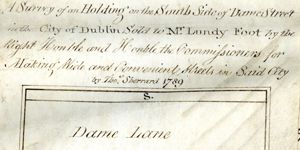 A Survey of an Holding on the South Side of Dame Street
in the City of Dublin Sold to Mr. Lundy Foot by the
Right Honble and Honble the Commissioners for
Making Wide and Convenient Streets in Said City
by Thos. Sherrard 1789
S.
Dame Lane